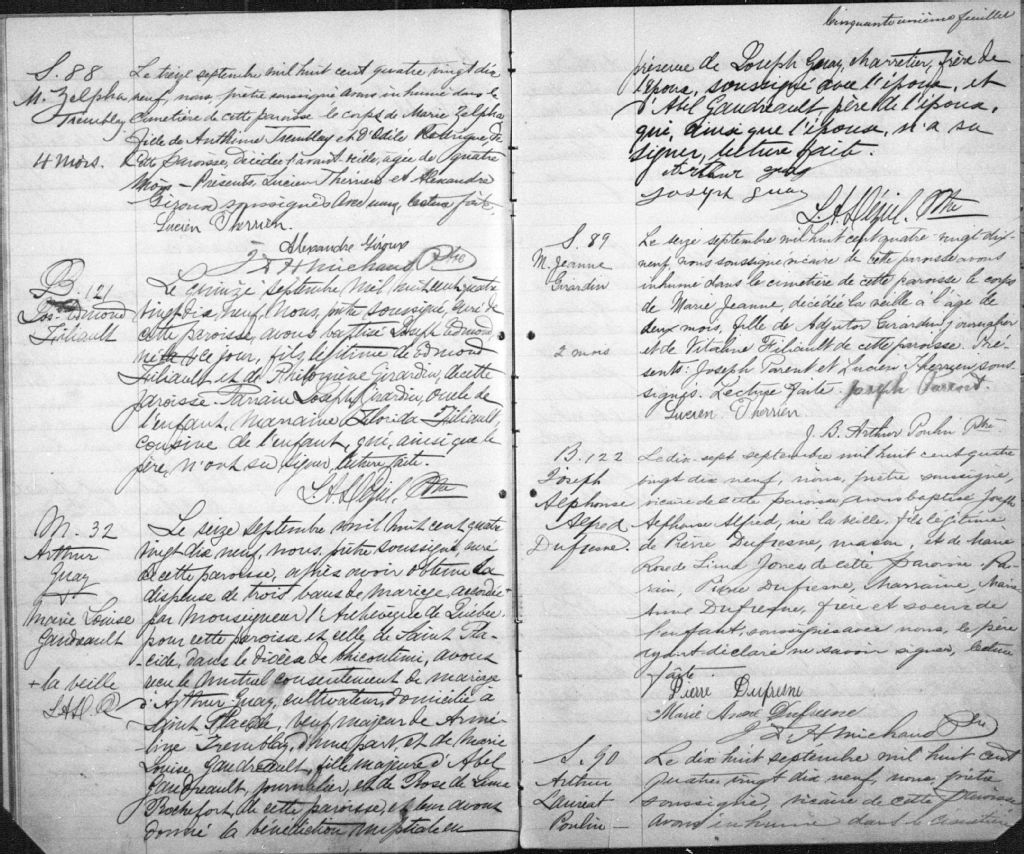 S. 88
M. Zelpha
Tremblay
4 mois.
Le treize septembre mil huit cent quatre vingt dix
neuf, nous, prêtre soussigné avons inhumé dans le
cimetière de cette paroisse le corps de Marie Zelpha
fille de Anthime Tremblay et d'Odile Rodrigue, de
cette paroisse, décédée l'avant veille, agée de quatre
mois – Présents, Lucien Therrien et Alexandre
Giroux soussignés avec nous, lecture faite.
Lucien Therrien.
Alexandre Giroux
J F H Michaud Ptre
B. 121
Jos. Edmond
Filiault
Le quinze septembre mil huit cent quatre
vingt dix neuf, nous, prêtre soussigné, curé de
cette paroisse, avons baptisé Joseph Edmond
né ce jour, fils légitime de Edmond
Filiault et de Philomène Girardin, de cette
paroisse. Parrain Joseph Girardin, oncle de
l'enfant, marraine Florida Filiault,
cousine de l'enfant, qui, ainsi que le
père, n'ont su signer, lecture faite.
Ptre
M. 32
Arthur
Guay
&
Marie Louise
Gaudreault
+ la veille
Le seize septembre mil huit cent quatre
vingt dix neuf, nous, prêtre soussigné, curé
de cette paroisse, après avoir obtenu la
dispense de trois bans de mariage accordée
par Monseigneur l'Archevêque de Québec
pour cette paroisse et celle de Saint Pla-
cide, dans le diocèse de Chicoutimi, avons
reçu le mutuel consentement de mariage
d'Arthur Guay, cultivateur, domicilié à
Saint Placide, veuf majeur de Armé-
line Tremblay, d'une part, et de Marie
Louise Gaudreault, fille majeure d'Abel
Gaudreault, journalier, et de Rose de Lima
Rochefort, de cette paroisse, et leur avons
donné la bénédiction nuptiale en
Cinquante unième feuillet
présence de Joseph Guay, charretier, frère de
l'époux, soussigné avec l'époux, et
d'Abel Gaudreault père de l'épouse,
qui, ainsi que l'épouse, n'a su
signer, lecture faite.
Arthur Guay
Joseph Guay
Ptre
S. 89
M. Jeanne
Girardin
2 mois
Le seize septembre mil huit cent quatre-vingt dix-
neuf, nous soussigné vicaire de cette paroisse avons
inhumé dans le cimetière de cette paroisse le corps
de Marie Jeanne, décédée la veille à l'âge de
deux mois, fille de Adjutor Girardin journalier
et de Vitaline Filiault de cette paroisse. Pré-
sents: Joseph Parent et Lucien Therrien sous-
signés. Lecture faite. Joseph Parent.
Lucien Therrien
J. B. Arthur Poulin Ptre
B. 122
Joseph
Alphonse
Alfred
Dufresne.
Le dix-sept septembre mil huit cent quatre
vingt dix neuf, nous, prêtre soussigné,
vicaire de cette paroisse avons baptisé Joseph
Alphonse Alfred, né la veille, fils légitime
de Pierre Dufresne, maçon, et de Marie
Rose de Lima Jones de cette paroisse. Par-
rain, Pierre Dufresne, Marraine, Marie
Anne Dufresne, frère et soeur de
l'enfant, soussignés avec nous, le père
ayant déclaré ne savoir signer, lecture
faite.
Pierre Dufresne
Marie Anne Dufresne
J F H Michaud Ptre
S. 90
Arthur
Laurent
Poulin –
Le dix huit septembre mil huit cent
quatre vingt dix neuf, nous, prêtre
soussigné, vicaire de cette paroisse
avons inhumé dans le cimetière